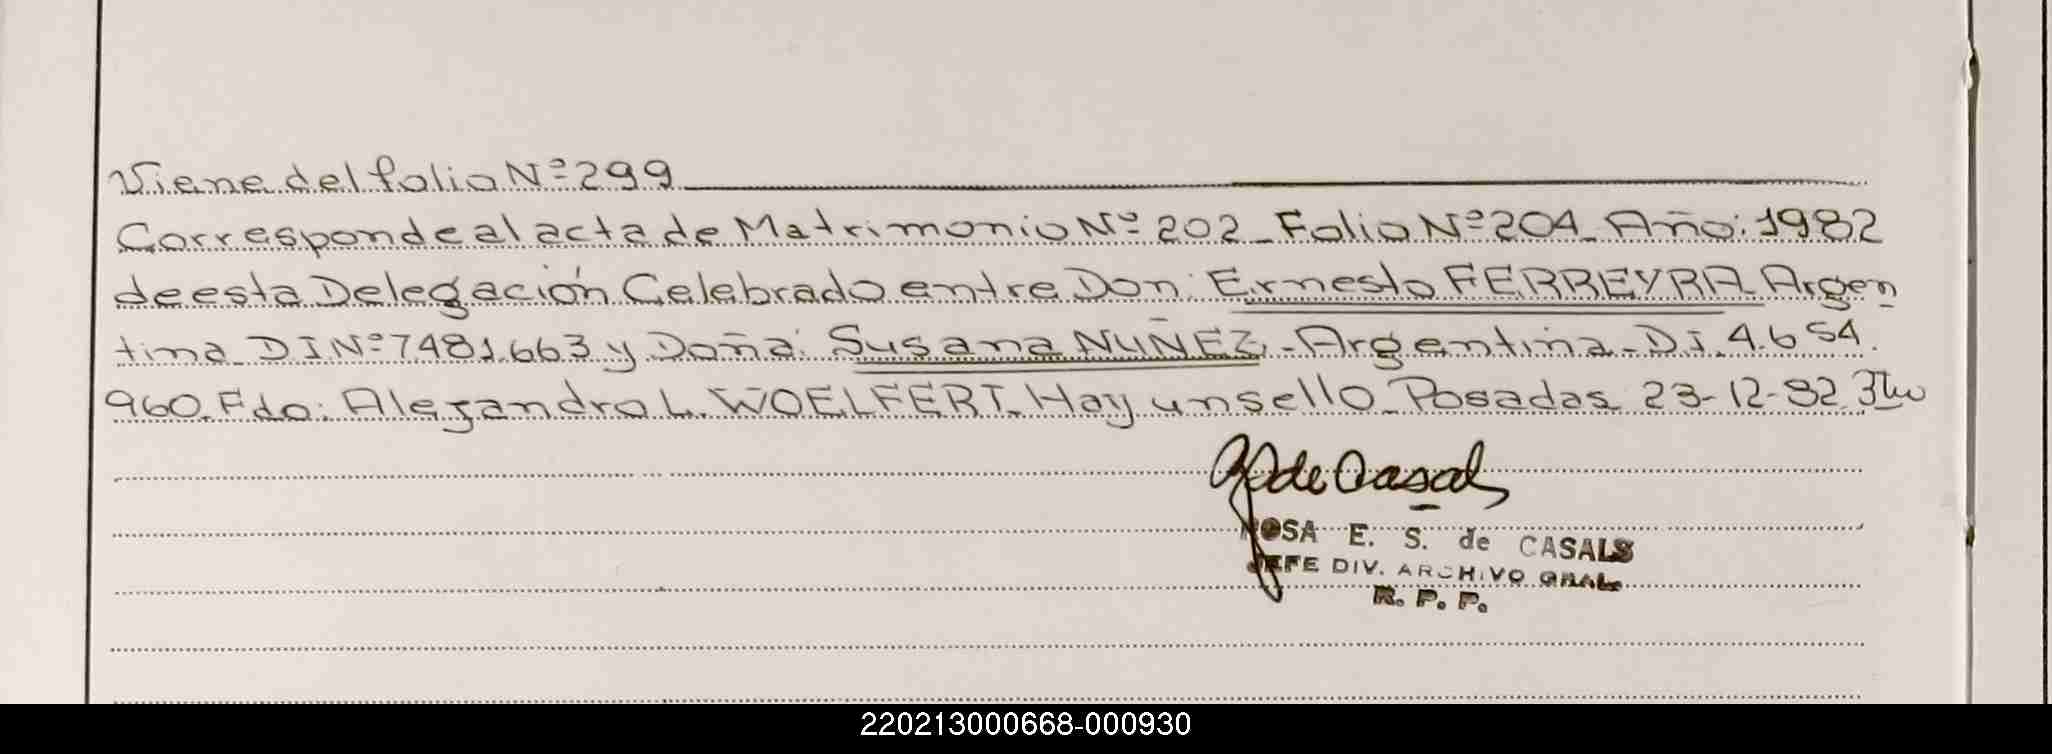 Viene del folio Nº 299
Corresponde al acta de Matrimonio Nº 202_ Folio Nº 204_ Año: 1982
de esta Delegación Celebrado entre Don: Ernesto FERREYRA Argen
tina_ DI Nº 7481.663 y Doña: Susana NUÑEZ_ Argentina_ D.I. 4.654.
960. Fdo: Alejandro L. WOELFERT_ Hay un sello_ Posadas 23-12-82
R de Casals
ROSA E. S. de CASALS
JEFE DIV. ARCHIVO GRAL.
R. P. P.
220213000668-000930